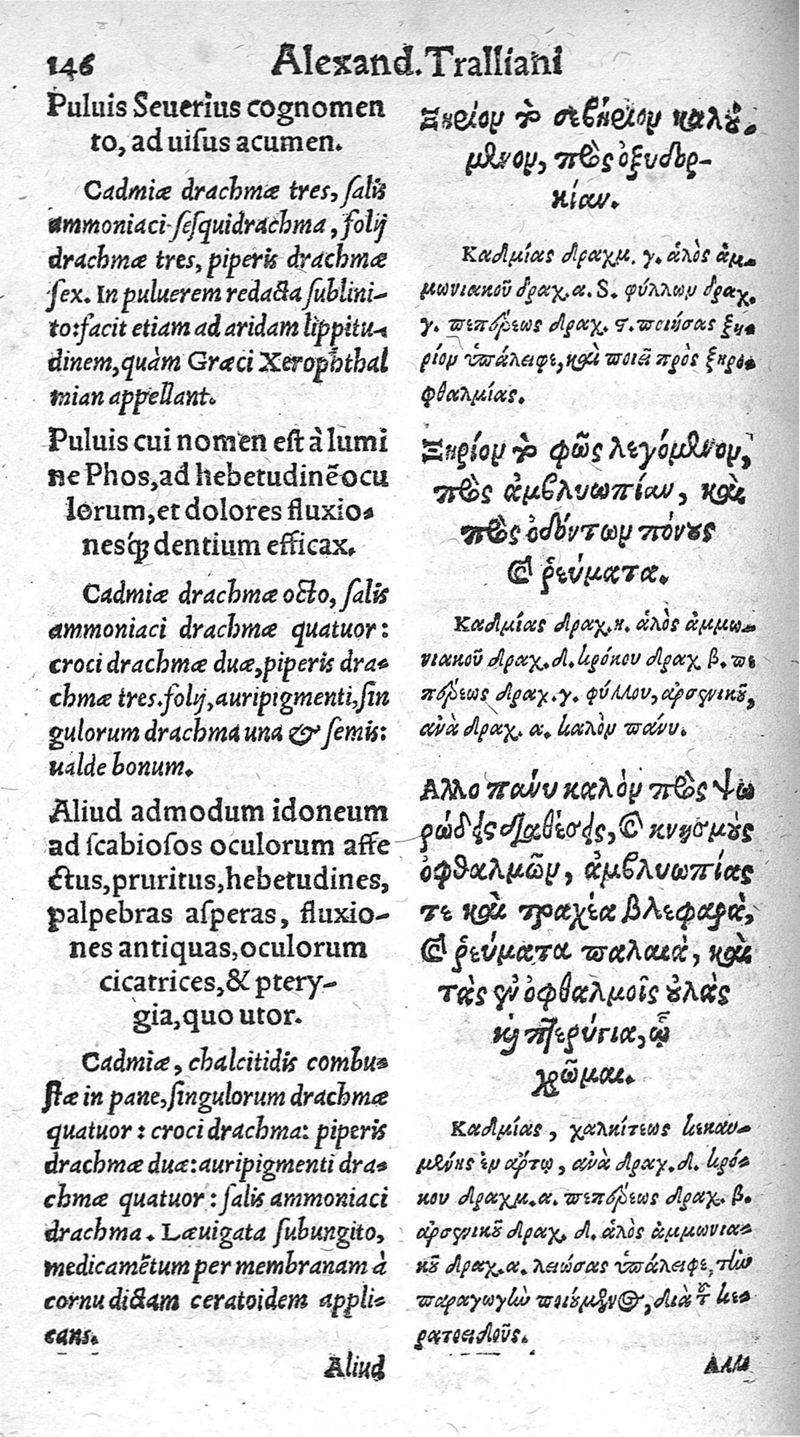 146 Alexand. Tralliani
Puluis Seuerius cognomen
to, ad uisus acumen.
Cadmiæ drachmæ tres, ſalis
ammoniaci ſeſquidrachma, folij
drachmæ tres, piperis drachmæ
ſex. In puluerem redacta ſublini-
to: facit etiam ad aridam lippitu-
dinem, quàm Græci Xerophthal
mian appellant.
Puluis cui nomen eſt à lumi
ne Phos, ad hebetudinẽ ocu
lorum, et dolores fluxio-
nesq́; dentium efficax.
Cadmiæ drachmæ octo, ſalis
ammoniaci drachmæ quatuor:
croci drachmæ duæ, piperis dra-
chmæ tres. folij, auripigmenti, ſin
gulorum drachma una & ſemis:
ualde bonum.
Aliud admodum idoneum
ad ſcabioſos oculorum affe
ctus, pruritus, hebetudines,
palpebras aſperas, fluxio-
nes antiquas, oculorum
cicatrices, & ptery-
gia, quo utor.
Cadmiæ, chalcitidis combu-
ſtæ in pane, ſingulorum drachmæ
quatuor: croci drachma: piperis
drachmæ duæ: auripigmenti dra-
chmæ quatuor: ſalis ammoniaci
drachma. Læuigata ſubungito,
medicamẽtum per membranam à
cornu dictam ceratoidem appli-
cans.
Aliud
Ξηρίον τὸ σεβήριον καλού-
μενον, πρὸς ὀξυδερ-
κίαν.
Καδμίας δραχμ. γ. ἁλὸς ἀμ-
μωνιακοῦ δραχ. α. S. φύλλων δραχ.
γ. πεπέρεως δραχ. ϛ. ποιήσας ξη-
ρίον ὑπάλειφε, καὶ ποιεῖ πρὸς ξηρο-
φθαλμίας.
Ξηρίον τὸ φῶς λεγόμενον,
πρὸς ἀμβλυωπίαν, καὶ
πρὸς ὀδόντων πόνους
καὶ ῥεύματα.
Καδμίας δραχ. η. ἁλὸς ἀμμω-
νιακοῦ δραχ. δ. κρόκου δραχ β. πε
πέρεως δραχ. γ. φύλλου, ἀρσενικοῦ,
ἀνὰ δραχ. α. καλὸν πάνυ.
Αλλο πάνυ καλὸν πρὸς ψω
ρώδεις διαθέσεις, καὶ κνησμοὺς
ὀφθαλμῶν, ἀμβλυωπίας
τε καὶ τραχέα βλεφαρὰ,
καὶ ῥεύματα παλαιὰ, καὶ
τὰς ἐν ὀφθαλμοῖς οὐλὰς
καὶ πτερύγια, ᾧ
χρῶμαι.
Καδμίας, χαλκίτεως κεκαυ-
μένης ἐν ἄρτῳ, ἀνὰ δραχ. δ. κρό-
κου δραχμ. α. πεπέρεως δραχ. β.
ἀρσενικοῦ δραχ. δ. ἁλὸς ἀμμωνια-
κοῦ δραχ. α. λειώσας ὑπάλειφε, τὴν
παραγωγὴν ποιούμενος, διὰ τοῦ κε-
ρατοειδοῦς.
Αλλο